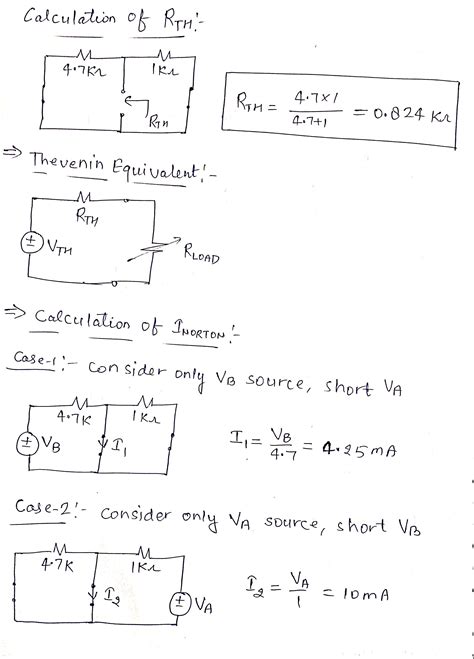 Calculation of R_TH:-
4.7KΩ 1KΩ
R_TH
R_TH = 4.7×1 / 4.7+1 = 0.824 KΩ
⇒ Thevenin Equivalent:-
R_TH
± V_TH
R_LOAD
⇒ Calculation of I_NORTON:-
Case-1:- consider only V_B source, short V_A
4.7K 1KΩ
± V_B I_1
I_1 = V_B / 4.7 = 4.25mA
Case-2:- consider only V_A source, short V_B
4.7K 1KΩ
I_2 ± V_A
I_2 = V_A / 1 = 10mA